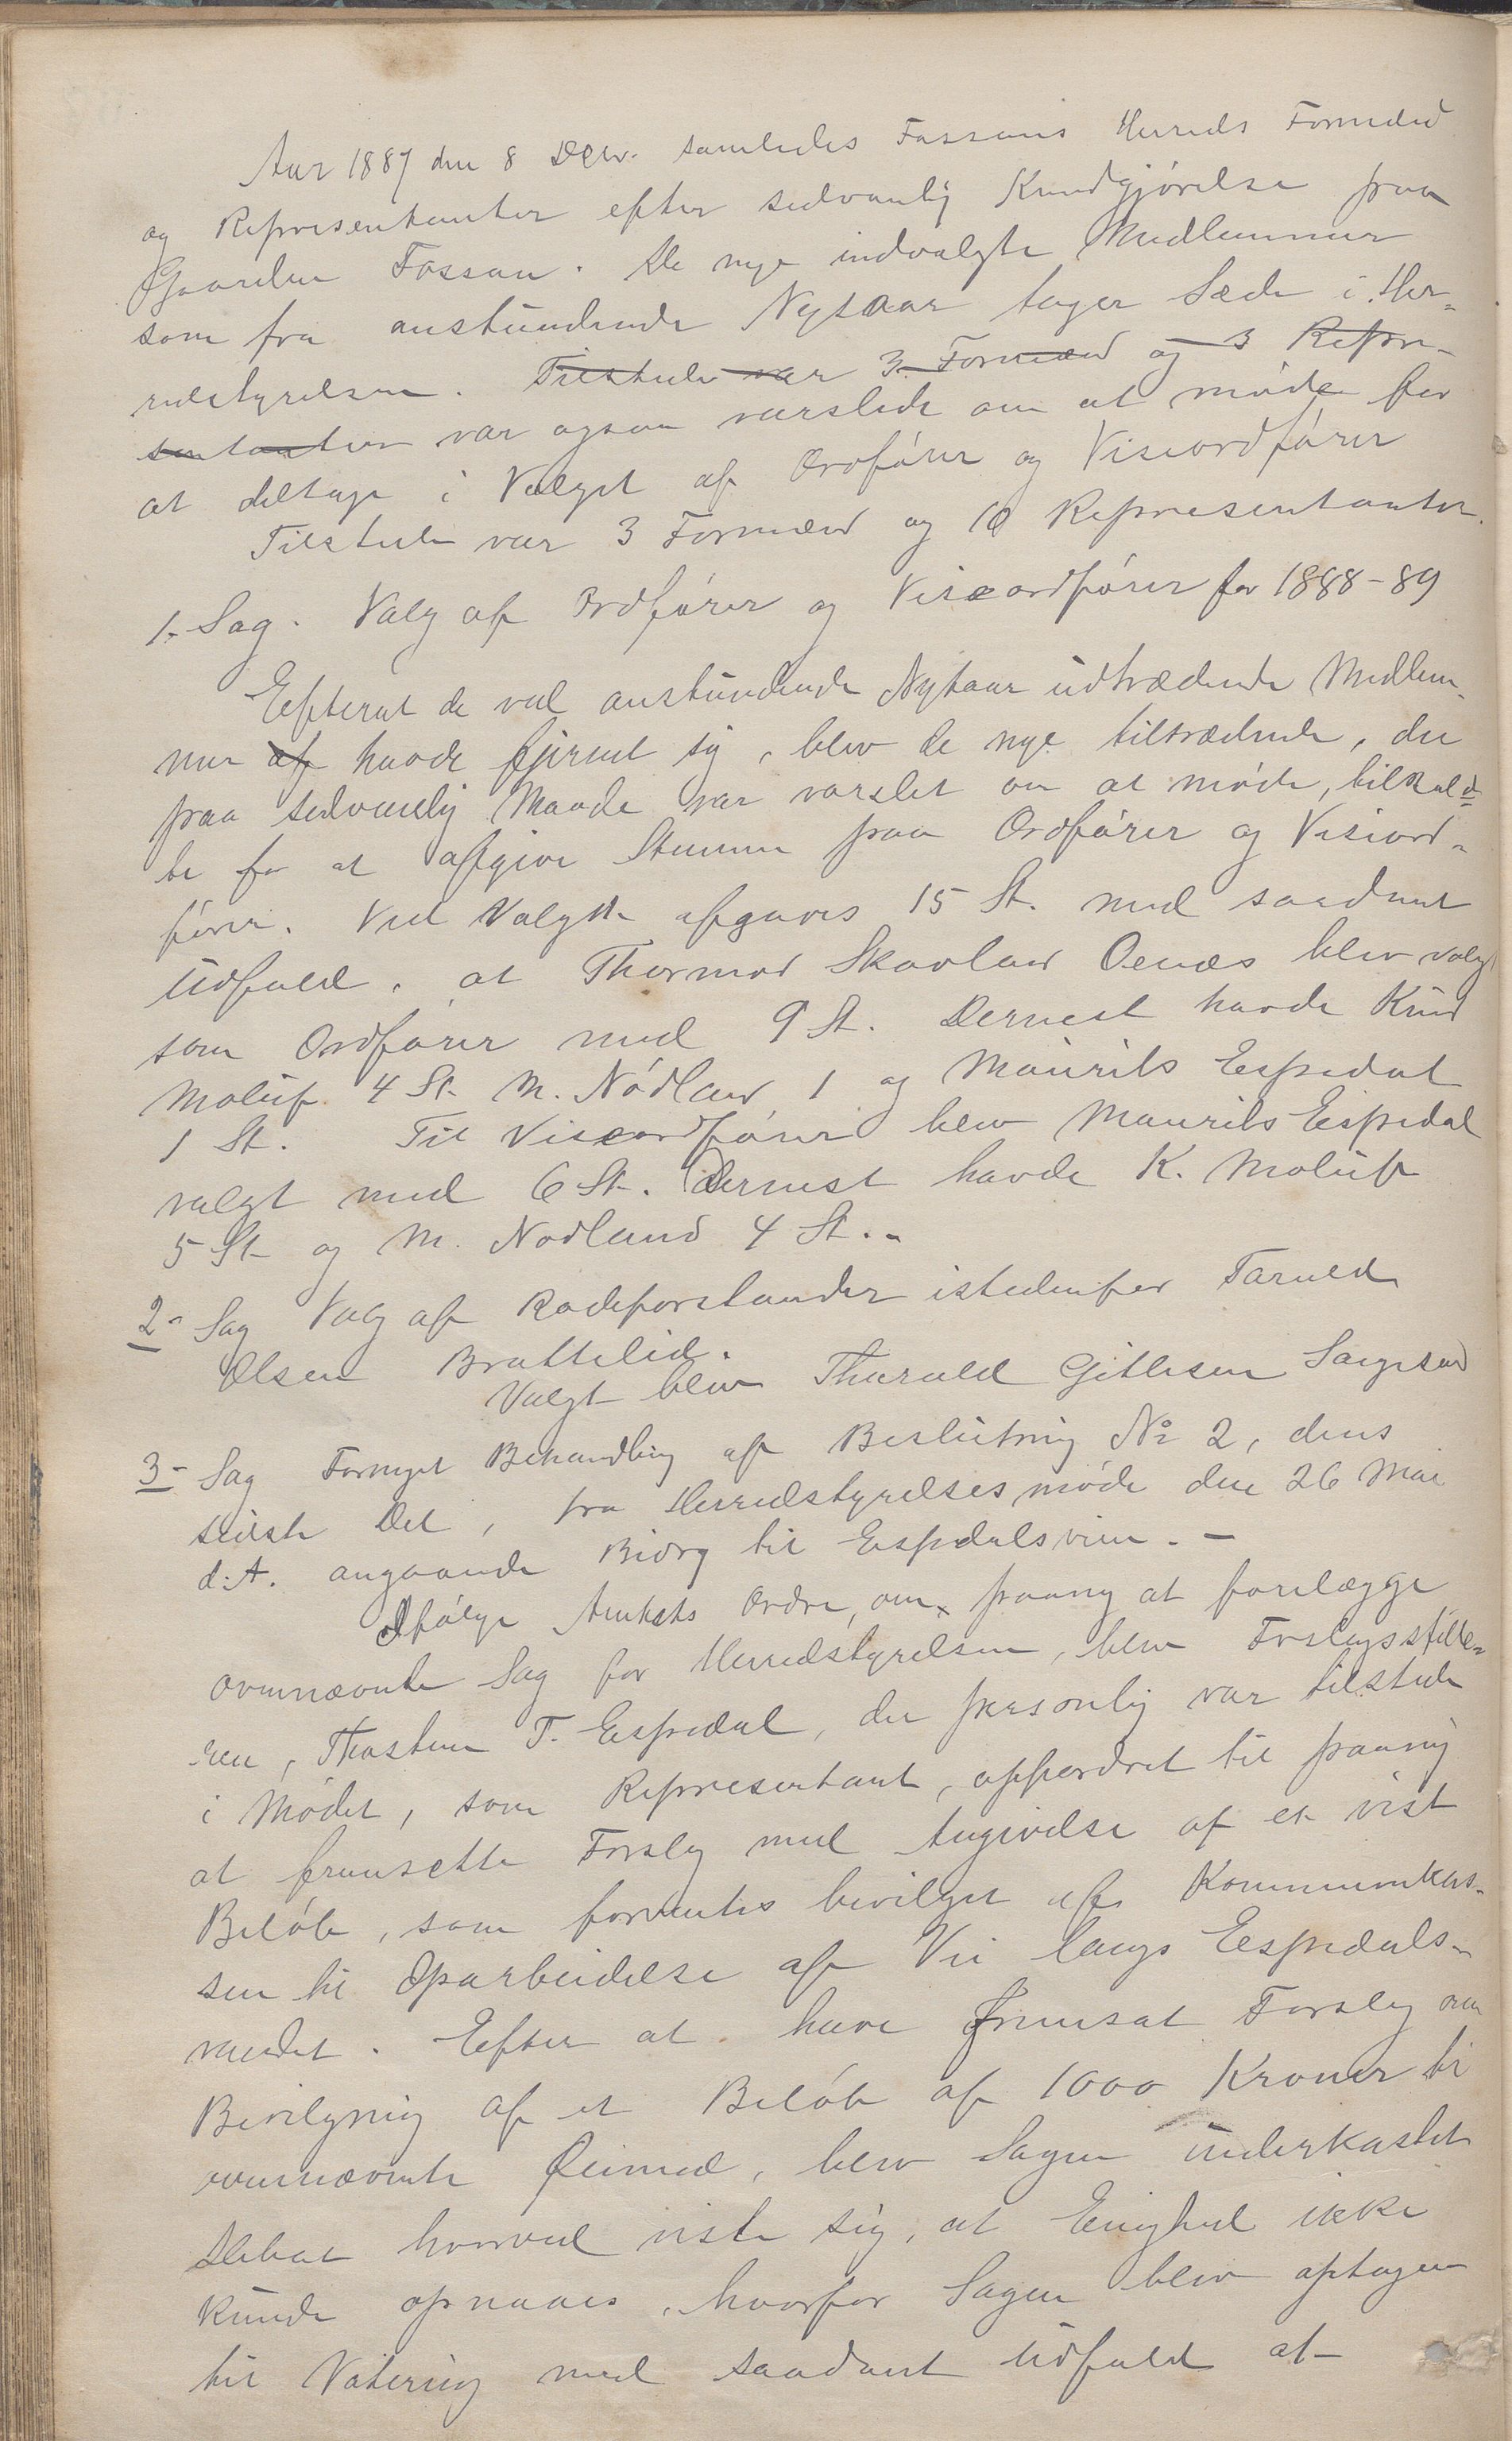 Aar 1887 den 8 Decbr. samledes Fossans Herreds Formænd
og Representanter efter sedvanlig Kundgjörelse paa
Gaarden Fossan. De nye indvalgte Medlemmer
som fra anstundende Nytaar tager Sæde i Her-
redstyrelsen. Tilstede var 3 Formænd og 3 Repre-
sentanter var ogsaa varslede om at møde for
at deltage i Valget af Ordförer og Viseordförer
Tilstede var 3 Formænd og 10 Representanter.
1. Sag. Valg af Ordförer og Viseordförer for 1888-89
Efterat de ved anstundende Nytaar udtrædende Medlem-
mer af havde fjernet sig, blev de nye tiltrædende, der
paa sedvanlig Maade var varslet om at möde, tilkald-
te for at afgive Stemme paa Ordförer og Viseord-
förer. Ved Valget afgaves 15 St. med saadant
Udfald, at Thormod Skavland Oenæs blev valgt
som Ordförer med 9 St. Dernest havde Knud
Moluf 4 St. M. Nödland 1 og Maurits Espedal
1 St. Til Viseordförer blev Maurits Espedal
valgt med 6 St. Dernest havde K. Moluf
5 St og M. Nodland 4 St..
2- Sag Valg af Rodeforstander istedenfor Taruld
Olsen Brattelid.
Valgt blev Tharald Gitlesen Sagesand
3- Sag Fornyet Behandling af Beslutning No 2, dens
sidste Del, fra Herredstyrelsesmöde den 26 Mai
d.A. angaaende Bidrag til Espedalsveien. -
Ifölge Amtets Ordre, om paany at forelægge
ovennævnte Sag for Herredstyrelsen, blev Forslagsstille-
ren, Thosten T. Espedal, der personlig var tilstede
i Mödet, som Representant, opfordret til paany
at fremsette Forslag med Angivelse af et vist
Belöb, som forventes bevilget af Kommunekas-
sen til Oparbeidelse af Vei langs Espedals-
vandet. Efter at have fremsat Forslag om
Bevilgning af et Belöb af 1000 Kroner til
ovennævnte Öiemed, blev Sagen underkastet
Debat hvorved viste sig, at Enighed ikke
kunde opnaaes, hvorfor Sagen blev optagen
til Votering med saadant Udfald at-